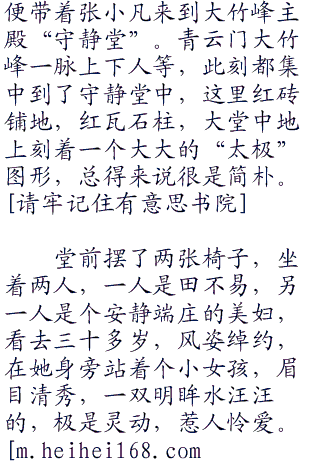 便带着张小凡来到大竹峰主
殿“守静堂”。青云门大竹
峰一脉上下人等，此刻都集
中到了守静堂中，这里红砖
铺地，红瓦石柱，大堂中地
上刻着一个大大的“太极”
图形，总得来说很是简朴。
[请牢记住有意思书院]
堂前摆了两张椅子，坐
着两人，一人是田不易，另
一人是个安静端庄的美妇，
看去三十多岁，风姿绰约，
在她身旁站着个小女孩，眉
目清秀，一双明眸水汪汪
的，极是灵动，惹人怜爱。
[m.heihei168.com